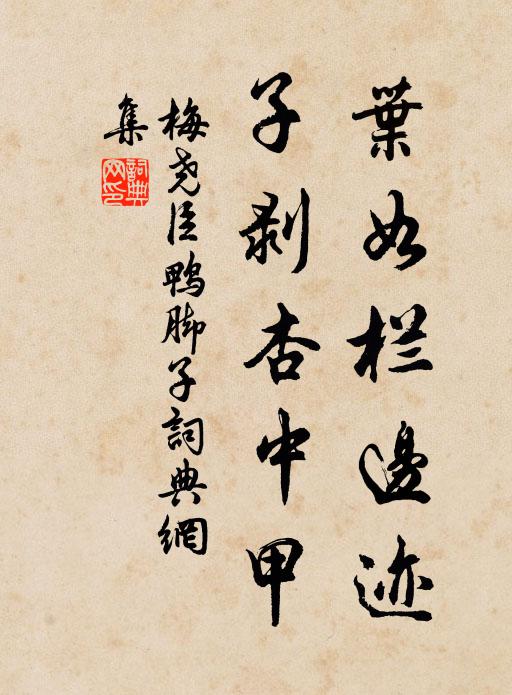 葉如栏邊迹
子剥杏中甲
梅尧臣鴨脚子詞典網
集
詞典
网印